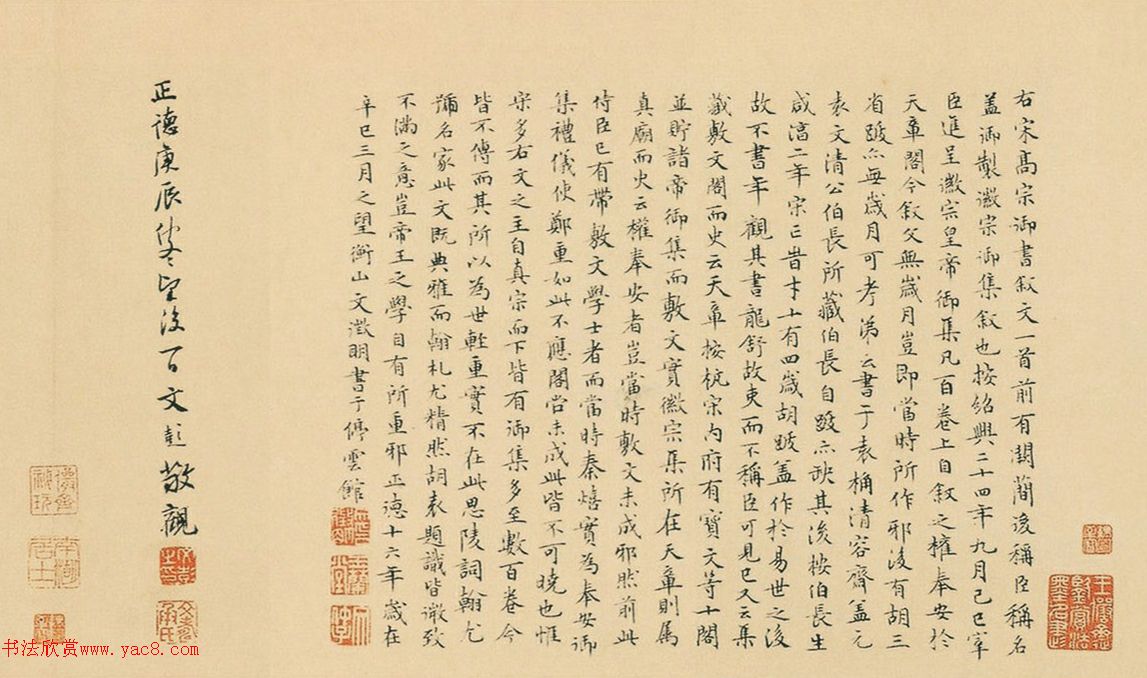 右宋高宗御書叙文一首前有闕蕳後稱臣稱名
盖御製徽宗御集叙也按紹興二十四年九月己巳宰
臣進呈徽宗皇帝御集凡百卷上自叙之權奉安於
天章閣今叙父無歲月豈即當時所作邪後有胡三
省跋亦無歲月可考第云書于袁桷清容齋盖元
袁文清公伯長所藏伯長自跋亦缺其後桉伯長生
咸淳二年宋亡昔才十有四歲胡跋盖作於易世之後
故不書年觀其書龍舒故吏而不稱臣可見已又云集
藏敷文閣而史云天章按杭宋内府有寶文等十閣
並貯諸帝御集而敷文實徽宗集所在天章則属
真廟而史云權奉安者豈當時敷文未成邪然前此
侍臣已有帶敷文學士者而當時秦熺實為奉安御
集禮儀使鄭重如此不應閣尚未成此皆不可曉也惟
宋多右文之王自真宗而下皆有御集多至數百卷今
皆不傳而其所以為世輕重實不在此思陵詞翰尤
號名家此文既典雅而翰札尤精然胡袁題識皆微致
不滿之意豈帝王之學自有所重邪正德十六年歲在
辛巳三月之望衡山文徵明書于停雲館
正德庚辰仲冬望後一日文彭敬觀
书法欣赏www.yac8.com